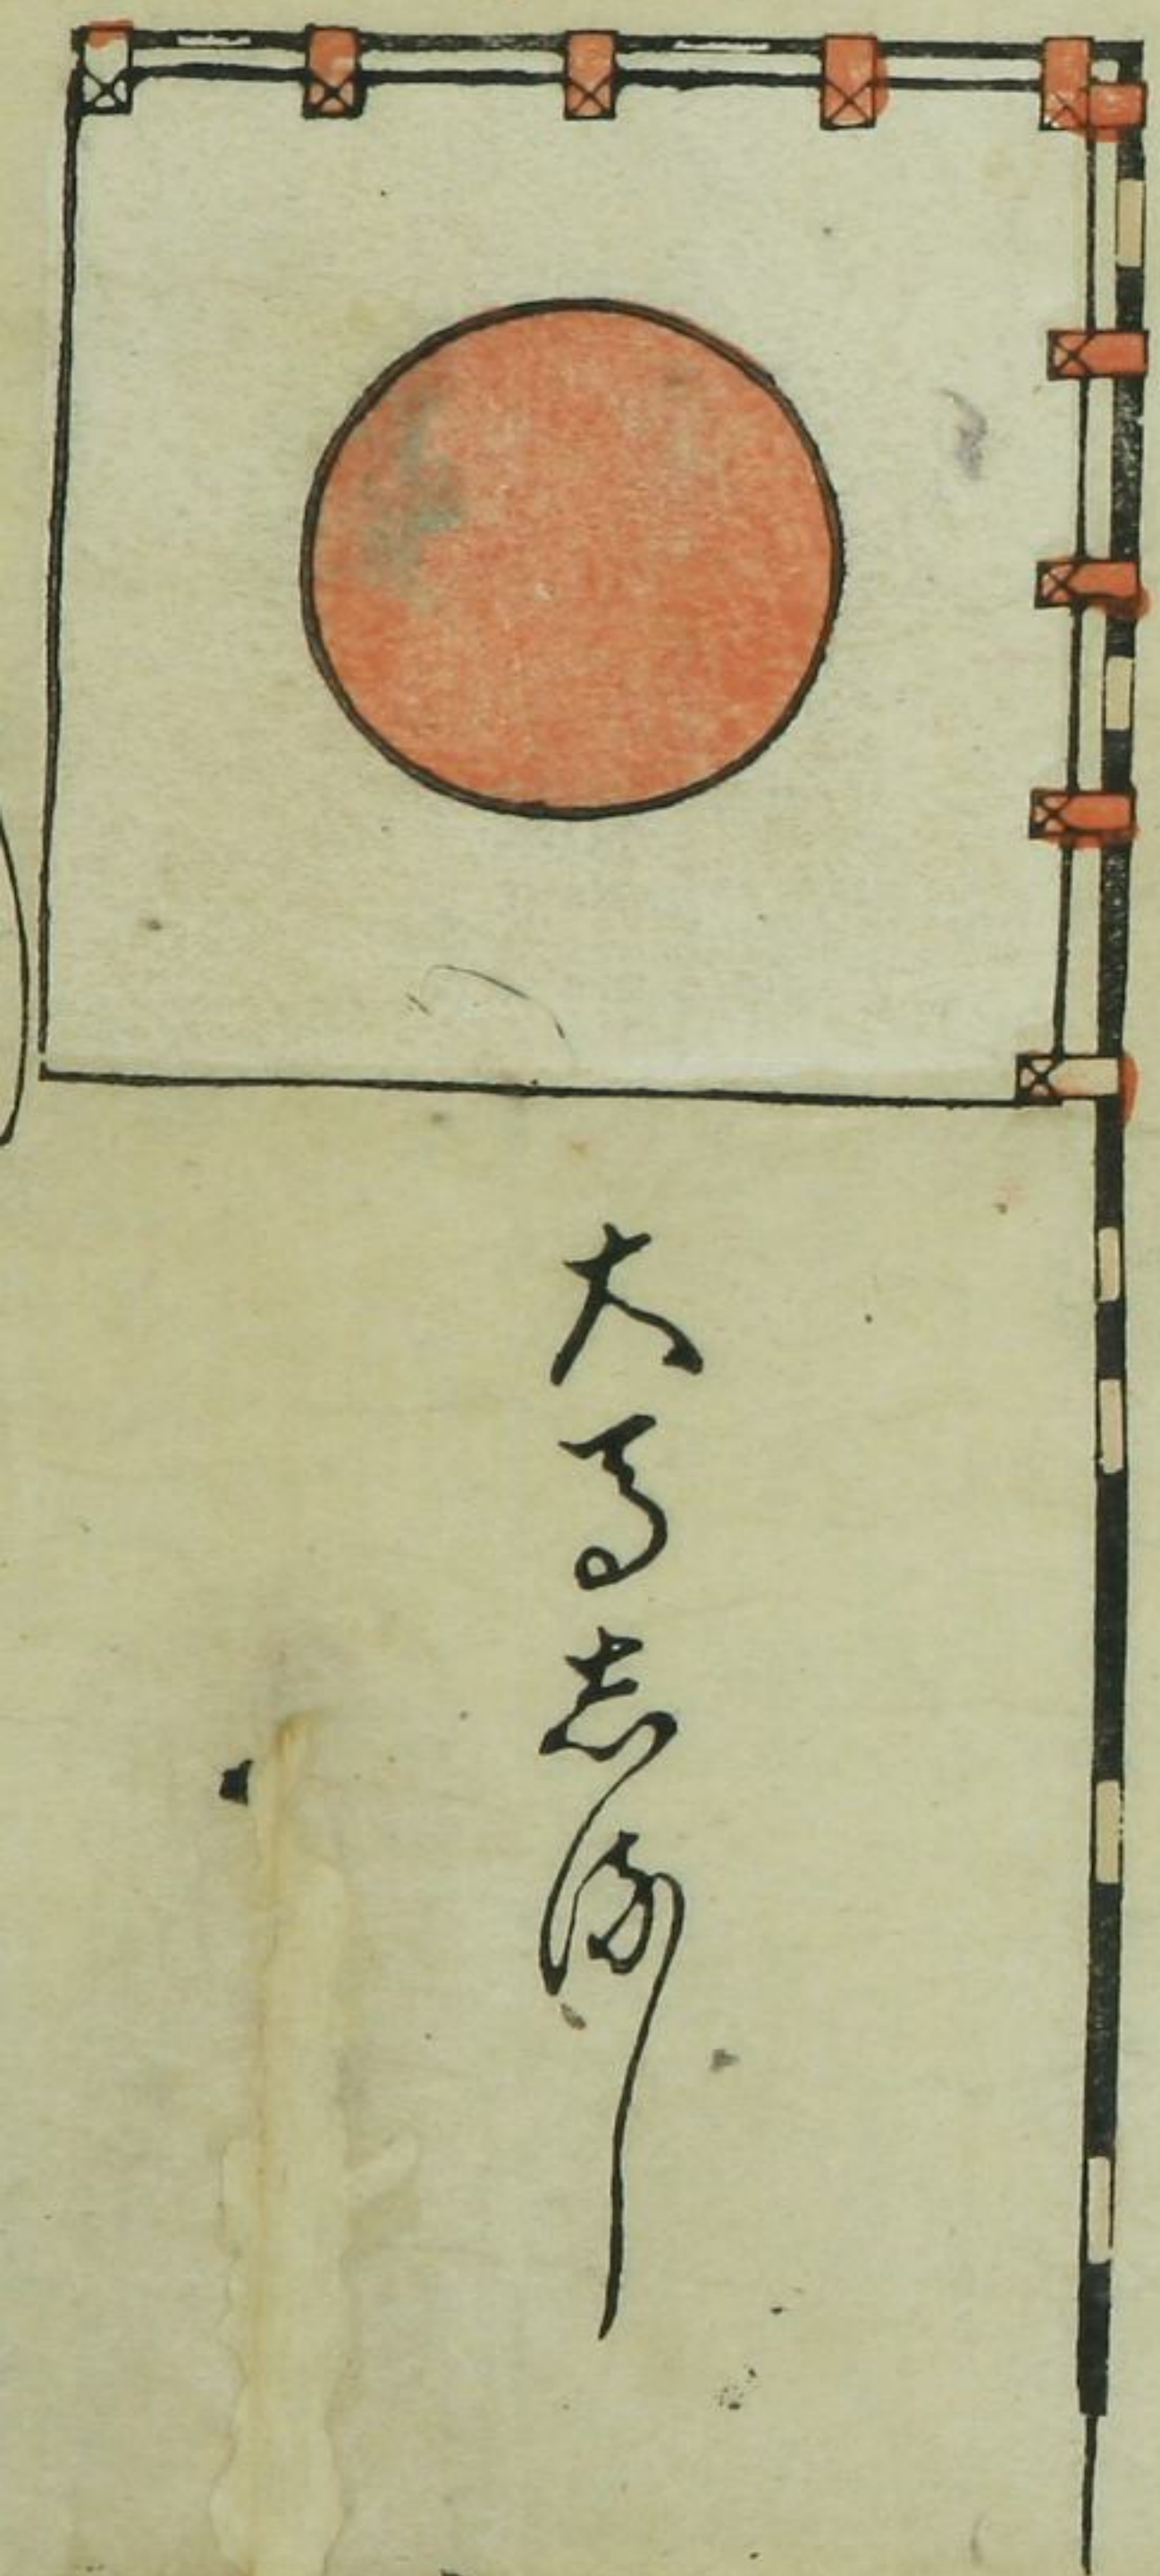 大馬志るし